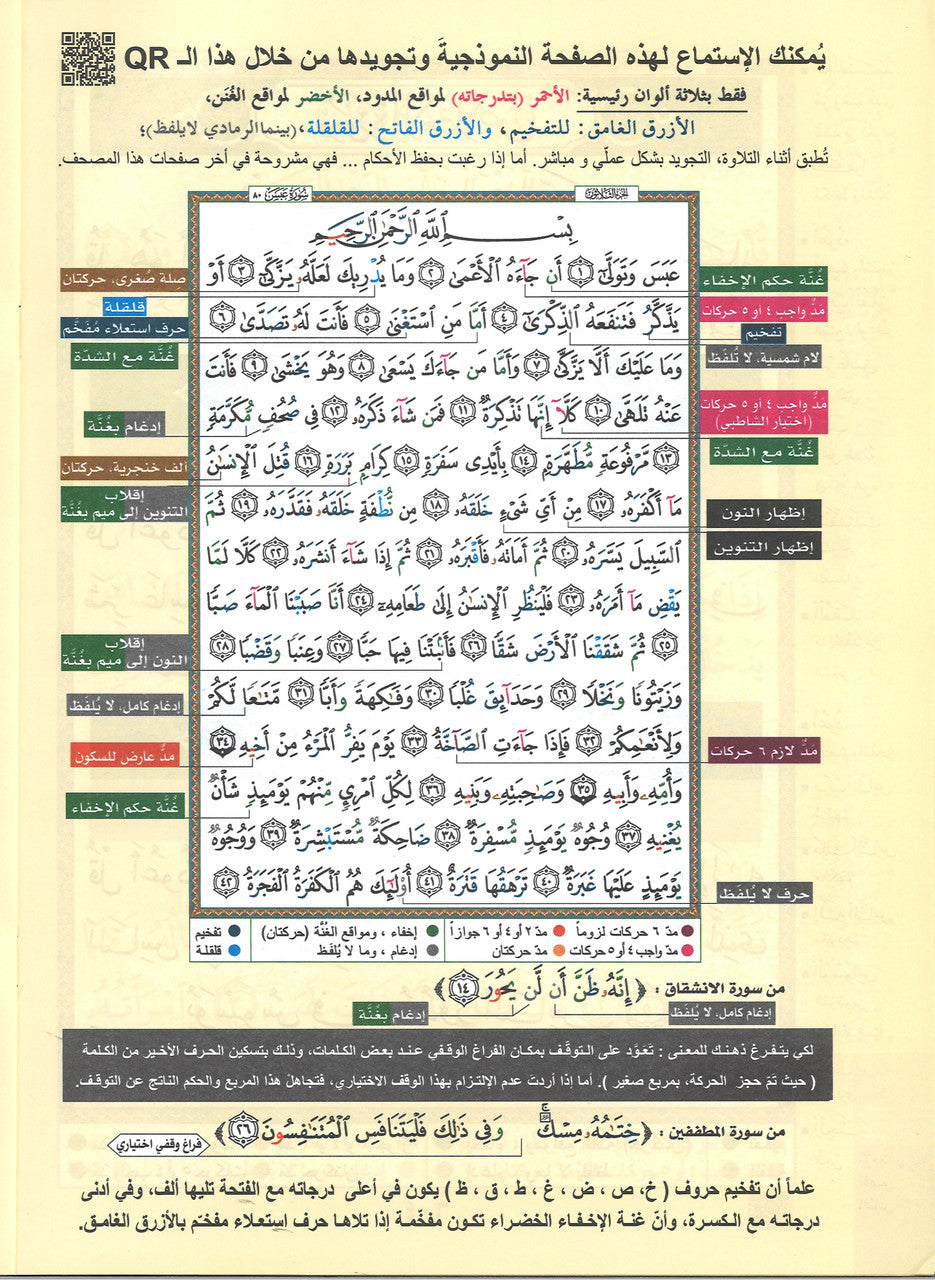 يُمكنك الإستماع لهذه الصفحة النموذجيةَ وتجويدها من خلال هذا الـ QR
فقط بثلاثة ألوان رئيسية: الأحمر (بتدرجاته) لمواقع المدود، الأخضر لمواقع الغُنَن،
الأزرق الغامق: للتفخيم، والأزرق الفاتح: للقلقلة،(بينما الرمادي لايلفظ)؛
تُطبق أثناء التلاوة، التجويد بشكل عملّي و مباشر. أما إذا رغبت بحفظ الأحكام ... فهي مشروحة في أخر صفحات هذا المصحف.
الجزء الثلاثون
سورة عبس ٨٠
بِسْمِ ٱللَّهِ ٱلرَّحْمَٰنِ ٱلرَّحِيمِ
عَبَسَ وَتَوَلَّىٰٓ ١ أَن جَآءَهُ ٱلْأَعْمَىٰ ٢ وَمَا يُدْرِيكَ لَعَلَّهُۥ يَزَّكَّىٰٓ ٣ أَوْ
يَذَّكَّرُ فَتَنفَعَهُ ٱلذِّكْرَىٰٓ ٤ أَمَّا مَنِ ٱسْتَغْنَىٰ ٥ فَأَنتَ لَهُۥ تَصَدَّىٰ ٦
وَمَا عَلَيْكَ أَلَّا يَزَّكَّىٰ ٧ وَأَمَّا مَن جَآءَكَ يَسْعَىٰ ٨ وَهُوَ يَخْشَىٰ ٩ فَأَنتَ
عَنْهُ تَلَهَّىٰ ١٠ كَلَّآ إِنَّهَا تَذْكِرَةٌ ١١ فَمَن شَآءَ ذَكَرَهُۥ ١٢ فِى صُحُفٍ مُّكَرَّمَةٍ
١٣ مَّرْفُوعَةٍ مُّطَهَّرَةٍۭ ١٤ بِأَيْدِى سَفَرَةٍ ١٥ كِرَامٍۭ بَرَرَةٍ ١٦ قُتِلَ ٱلْإِنسَٰنُ
مَآ أَكْفَرَهُۥ ١٧ مِنْ أَىِّ شَىْءٍ خَلَقَهُۥ ١٨ مِن نُّطْفَةٍ خَلَقَهُۥ فَقَدَّرَهُۥ ١٩ ثُمَّ
ٱلسَّبِيلَ يَسَّرَهُۥ ٢٠ ثُمَّ أَمَاتَهُۥ فَأَقْبَرَهُۥ ٢١ ثُمَّ إِذَا شَآءَ أَنشَرَهُۥ ٢٢ كَلَّا لَمَّا
يَقْضِ مَآ أَمَرَهُۥ ٢٣ فَلْيَنظُرِ ٱلْإِنسَٰنُ إِلَىٰ طَعَامِهِۦٓ ٢٤ أَنَّا صَبَبْنَا ٱلْمَآءَ صَبًّا
٢٥ ثُمَّ شَقَقْنَا ٱلْأَرْضَ شَقًّا ٢٦ فَأَنۢبَتْنَا فِيهَا حَبًّا ٢٧ وَعِنَبًا وَقَضْبًا ٢٨
وَزَيْتُونًا وَنَخْلًا ٢٩ وَحَدَآئِقَ غُلْبًا ٣٠ وَفَٰكِهَةً وَأَبًّا ٣١ مَّتَٰعًا لَّكُمْ
وَلِأَنْعَٰمِكُمْ ٣٢ فَإِذَا جَآءَتِ ٱلصَّآخَّةُ ٣٣ يَوْمَ يَفِرُّ ٱلْمَرْءُ مِنْ أَخِيهِ ٣٤
وَأُمِّهِۦ وَأَبِيهِ ٣٥ وَصَٰحِبَتِهِۦ وَبَنِيهِ ٣٦ لِكُلِّ ٱمْرِئٍ مِّنْهُمْ يَوْمَئِذٍ شَأْنٌ
يُغْنِيهِ ٣٧ وُجُوهٌ يَوْمَئِذٍ مُّسْفِرَةٌ ٣٨ ضَاحِكَةٌ مُّسْتَبْشِرَةٌ ٣٩ وَوُجُوهٌ
يَوْمَئِذٍ عَلَيْهَا غَبَرَةٌ ٤٠ تَرْهَقُهَا قَتَرَةٌ ٤١ أُو۟لَٰٓئِكَ هُمُ ٱلْكَفَرَةُ ٱلْفَجَرَةُ ٤٢
غُنَّة حكم الإخفاء
مدّ واجب ٤ أو ٥ حركات
تفخيم
لام شمسية، لا تُلفَظ
مدّ واجب ٤ أو ٥ حركات
(اختيار الشاطبي)
غُنَّة مع الشدّة
إظهار النون
إظهار التنوين
مَدّ لازم ٦ حركات
حرف لا يُلفَظ
صلة صُغرى، حركتان
قلقلة
حرف استعلاء مُفَخَّم
غُنَّة مع الشدّة
إدغام بغُنَّة
ألف خنجرية، حركتان
إقلاب
التنوين إلى ميم بغُنَّة
إقلاب
النون إلى ميم بغُنَّة
إدغام كامل، لا يُلفَظ
مدّ عارض للسكون
غُنَّة حكم الإخفاء
مدّ ٦ حركات لزوماً
مدّ ٢ أو ٤ أو ٦ جوازاً
إخفاء ، ومواقع الغُنَّة (حركتان)
تفخيم
مدّ واجب ٤ أو ٥ حركات
مدّ حركتان
إدغام ، وما لا يُلفَظ
قلقلة
من سورة الانشقاق : ﴿ إِنَّهُۥ ظَنَّ أَن لَّن يَحُورَ ١٤ ﴾
إدغام كامل، لا يُلفَظ
إدغام بغُنَّة
لكي يتفرغ ذهنك للمعنى : تَعَوَّد على التوقّف بمكان الفراغ الوقفي عند بعض الكلمات، وذلك بتسكين الحرف الأخير من الكلمة
( حيث تمّ حجز الحركة، بمربع صغير ). أما إذا أردتَ عدم الإلتزام بهذا الوقف الاختياري، فتجاهلْ هذا المربع والحكم الناتج عن التوقف.
من سورة المطففين : ﴿ خِتَٰمُهُۥ مِسْكٌ ۚ وَفِى ذَٰلِكَ فَلْيَتَنَافَسِ ٱلْمُتَنَٰفِسُونَ ٢٦ ﴾
فراغ وقفي اختياري
علماً أن تفخيم حروف ( خ، ص ، ض ، غ ، ط ، ق ، ظ ) يكون في أعلى درجاته مع الفتحة تليها ألف، وفي أدنى
درجاته مع الكسرة، وأنّ غنة الإخفاء الخضراء تكون مفخّمة إذا تلاها حرف إستعلاء مفخّم بالأزرق الغامق.